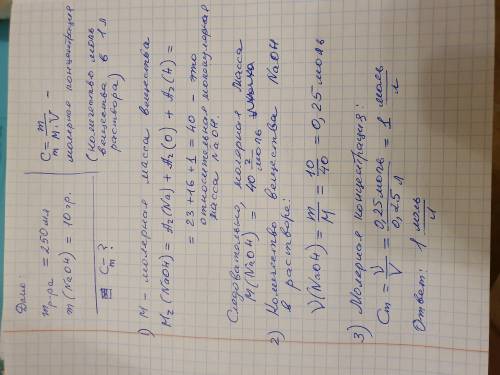 Дано:
m р-ра = 250 мл
m (NaOH) = 10 гр.
Cm - ?
C m = m / M · V –
молярная концентрация
(количество моль
вещества в 1 л
раствора)
1) M - молярная масса вещества
Mr (NaOH) = Ar (Na) + Ar (O) + Ar (H) =
= 23 + 16 + 1 = 40 - это
относительная молекулярная
масса NaOH.
Следовательно, молярная масса
M (NaOH) = 40 г/моль
2) Количество вещества NaOH
в растворе:
ν (NaOH) = m/M = 10/40 = 0,25 моль
3) Молярная концентрация:
Cm = ν/V = 0,25 моль / 0,25 л = 1 моль/л
Ответ: 1 моль/л